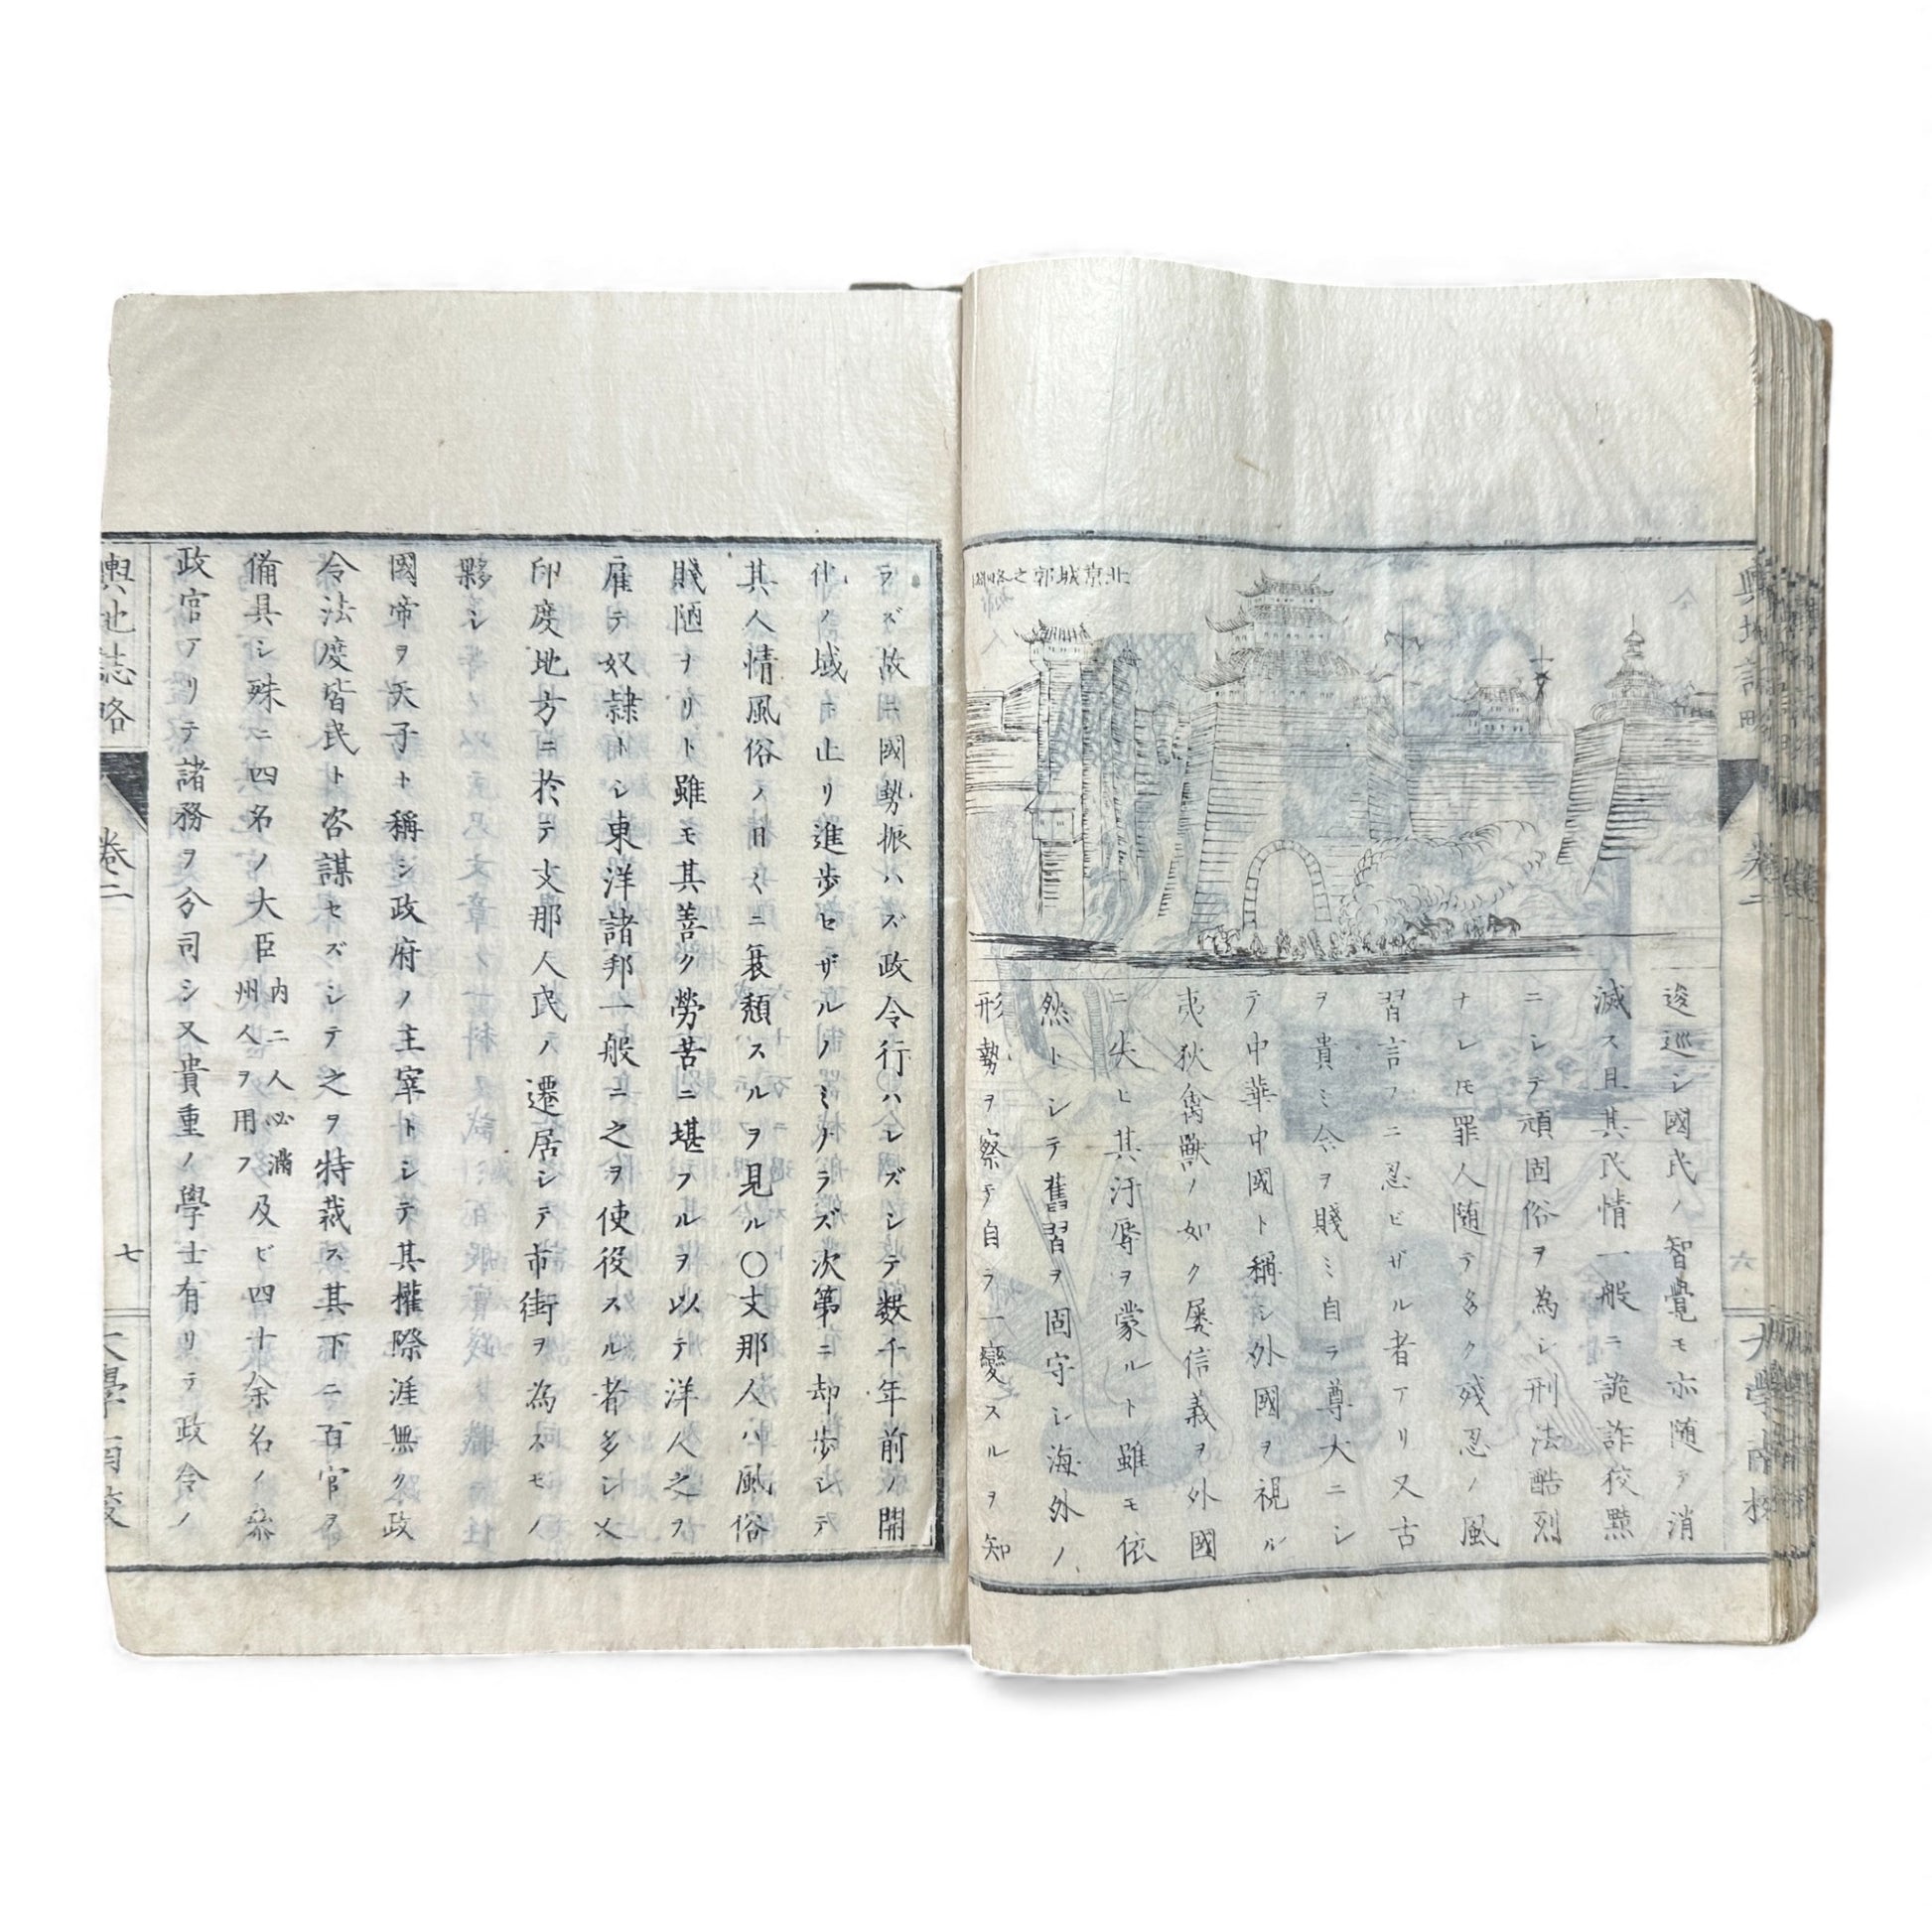 北京城郭之略圖
逡巡シ國民ノ智覺モ亦随テ消
滅ス且其民情一般ニ詭詐狡黠
ニシテ頑固俗ヲ為シ刑法酷烈
ナレ𪜈罪人随テ多ク残忍ノ風
習言フニ忍ビザル者アリ又古
ヲ貴ミ今ヲ賤ミ自ラ尊大ニシ
テ中華中國ト稱シ外國ヲ視ル
夷狄禽獸ノ如ク屡信義ヲ外國
ニ失ヒ其汙辱ヲ蒙ルト雖モ依
然トシテ舊習ヲ固守シ海外ノ
形勢ヲ察テ自ラ一變スルヲ知
ラズ故ニ國勢振ハズ政令行ハレズシテ数千年前ノ開
化ノ域ニ止リ進歩セザルノミナラズ次第ニ却歩シテ
其人情風俗ノ日〻ニ衰頽スルヲ見ル〇支那人ハ風俗
賤陋ナリト雖モ其善ク勞苦ニ堪フルヲ以テ洋人之ヲ
雇テ奴隷トシ東洋諸邦一般ニ之ヲ使役スル者多シ又
印度地方ニ於テ支那人民ノ遷居シテ市街ヲ為スモノ
夥シ
國帝ヲ天子ト稱シ政府ノ主宰トシテ其權際涯無ク政
令法度皆民ト咨謀セズシテ之ヲ特裁ス其下ニ百官ヲ
備具シ殊ニ四名ノ大臣内二人必滿州人ヲ用フ及ビ四十余名ノ叅
政官アリテ諸務ヲ分司シ又貴重ノ學士有リテ政令ノ
輿地誌略 卷二 七 大學南校